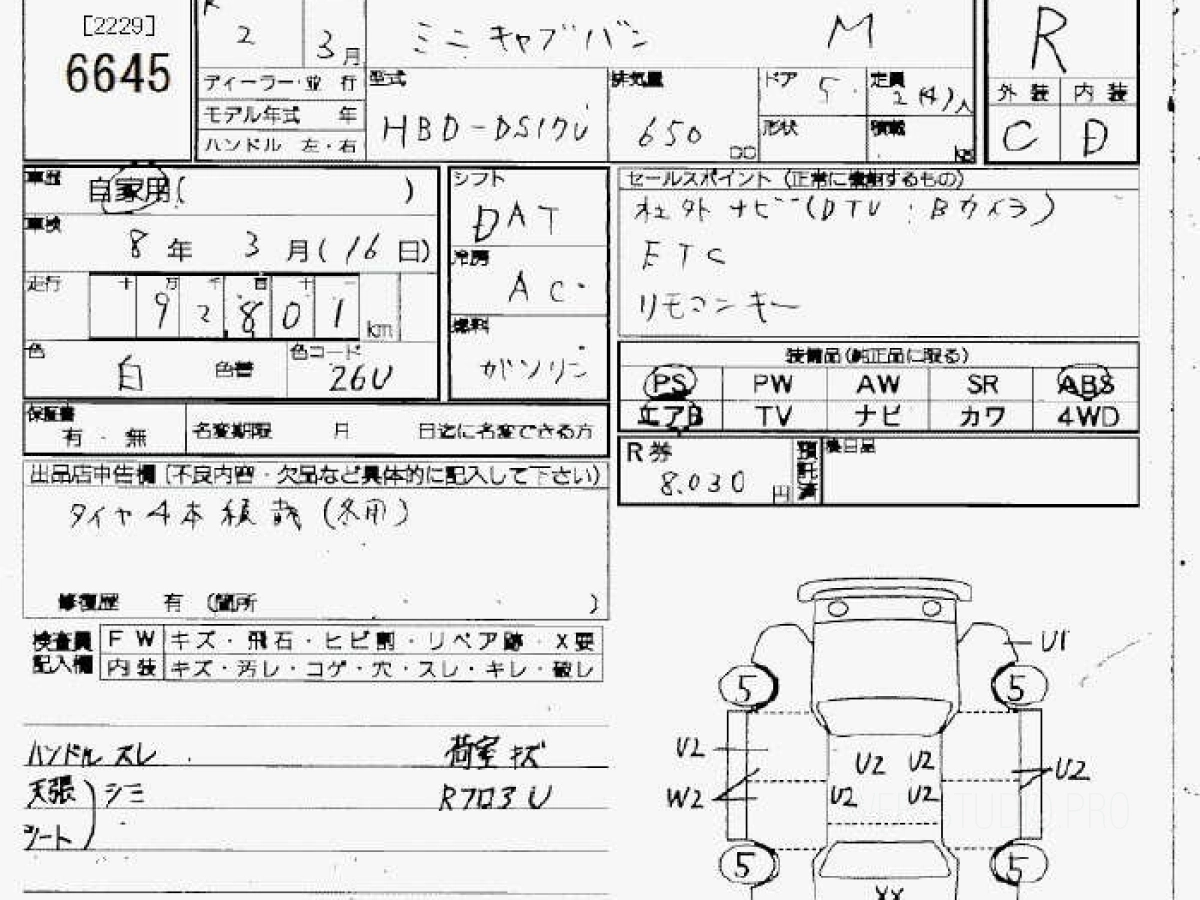 [2229]
6645
R
2
3月
ミニキャブバン
M
ディーラー・並 行
モデル年式 年
ハンドル 左・右
型式
HBD-DS17V
排気量
650
cc
ドア
5
定員
2(4)人
形状
積載
kg
R
外装 内装
C D
車歴
自家用( )
車検
8年 3月(16日)
走行
十 万 千 百 十 一
9 2 8 0 1 km
色
白
色替
色コード
26U
シフト
DAT
冷房
AC
燃料
ガソリン
セールスポイント (正常に機能するもの)
社外ナビ(DTV:Bカメラ)
ETC
リモコンキー
装備品(純正品に限る)
PS PW AW SR ABS
エアB TV ナビ カワ 4WD
保証書
有・無
名変期限 月 日迄に名変できる方
R券
8.030円
預託済
後日品
出品店申告欄(不良内容・欠品など具体的に記入して下さい)
タイヤ4本積載(冬用)
修復歴 有 (箇所 )
検査員
記入欄
FW キズ・飛石・ヒビ割・リペア跡・X要
内装 キズ・汚レ・コゲ・穴・スレ・キレ・破レ
ハンドルスレ
荷室キズ
天張
シート
シミ
RフロアU
U1
5 5
U2
W2
U2 U2
U2 U2
U2
5 5
XX